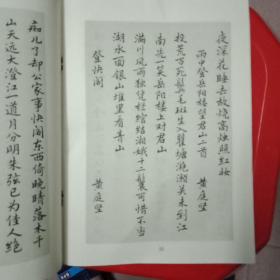 夜深花睡去故燒高燭照紅妝
雨中登岳陽樓望君山二首
黄庭堅
投荒万死鬢毛班生入瞿塘滟滪关未到江
南先一笑岳陽楼上對君山
满川风雨獨凭栏绾结湘娥十二鬟可惜不當
湖水面银山堆里看青山
登快阁
黄庭堅
痴儿了却公家事快阁东西倚晚晴落木千
山天远大澄江一道月分明朱弦已为佳人绝